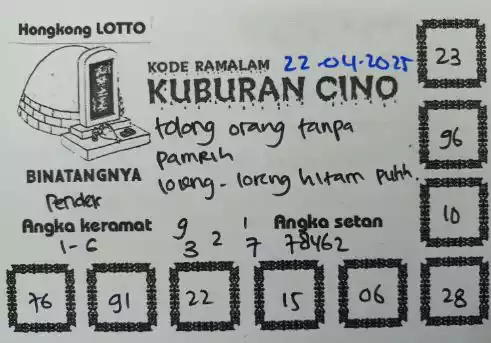 Hongkong LOTTO
KODE RAMALAM 22-04-2025
KUBURAN CINO
tolong orang tanpa
pamrih
loreng-loreng hitam putih.
BINATANGNYA
Pendek
Angka keramat
1-6
9 1
3 2 7
Angka setan
78462
23
96
10
28
76 91 22 15 06